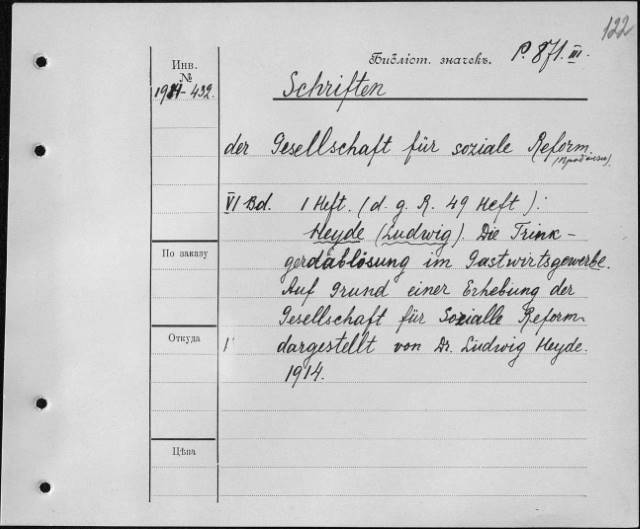 122
Библіот. значекъ. P. 871. III.
Инв.
№
1914-432.
Schriften
der Gesellschaft für soziale Reform.
VI Bd. 1 Heft. (d. g. R. 49 Heft):
Heyde (Ludwig). Die Trink-
gerdablösung im Gastwirtsgewerbe.
Auf Grund einer Erhebung der
Gesellschaft für Sozialle Reform
dargestellt von Dr. Ludwig Heyde.
1914.
По заказу
Откуда
1
Цѣна